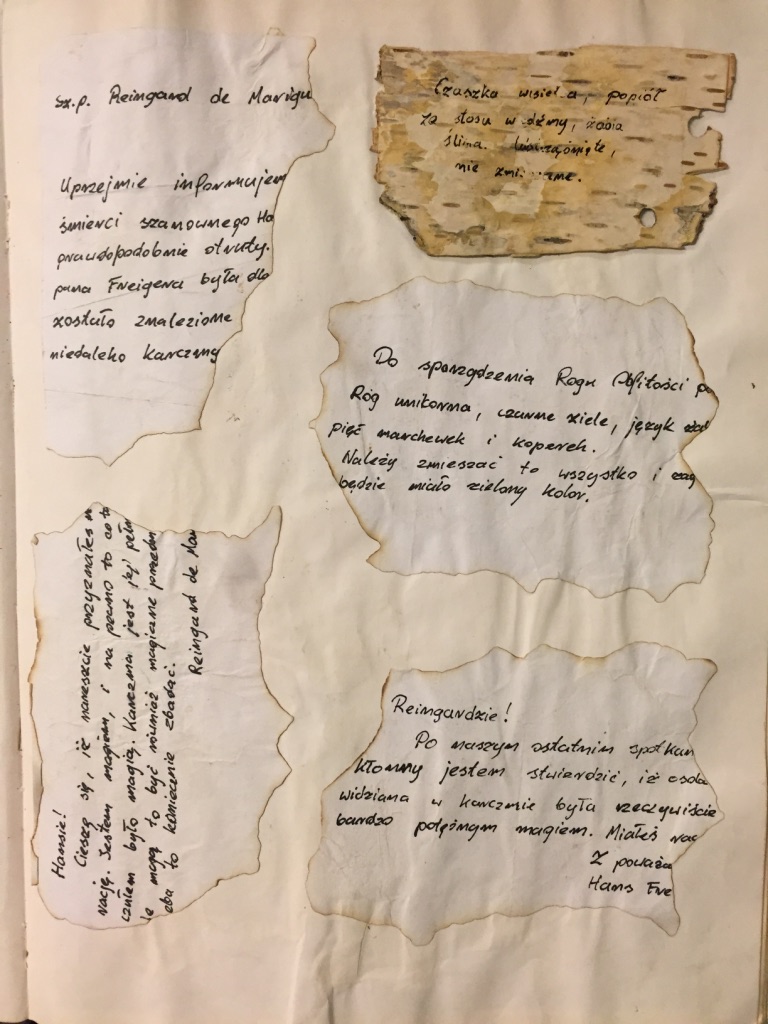 sz.p. Reingard de Marigu
Uprzejmie informujem
śmierci szanownego Ha
prawdopodobnie otruty.
pana Freigera była dlo
zostało znalezione
niedaleko karczmy
Czaszka wisiel a, popiół
ze stosu w dźmy, żabia
ślina.
nie
Do sporządzenia Rogu Obfitości po
Róg unikorna, czarne ziele, język
pięć marchewek i koperek.
Należy zmieszać to wszystko i zag
będzie miało zielony kolor.
Hansie!
Cieszę się, iż nareszcie przyznałeś m
rację. Jestem magiem, i na pewno to co to
czułem było magią. Karczma jest jej pełn
le mogą to być również magiczne przedm
eba to koniecznie zbadać.
Reingard de Mar
Reingardzie!
Po naszym ostatnim spotkan
kłonny jestem stwierdzić, iż osoba
widziana w karczmie była rzeczywiście
bardzo potężnym magiem. Miałeś rac
Z poważa
Hans Fre